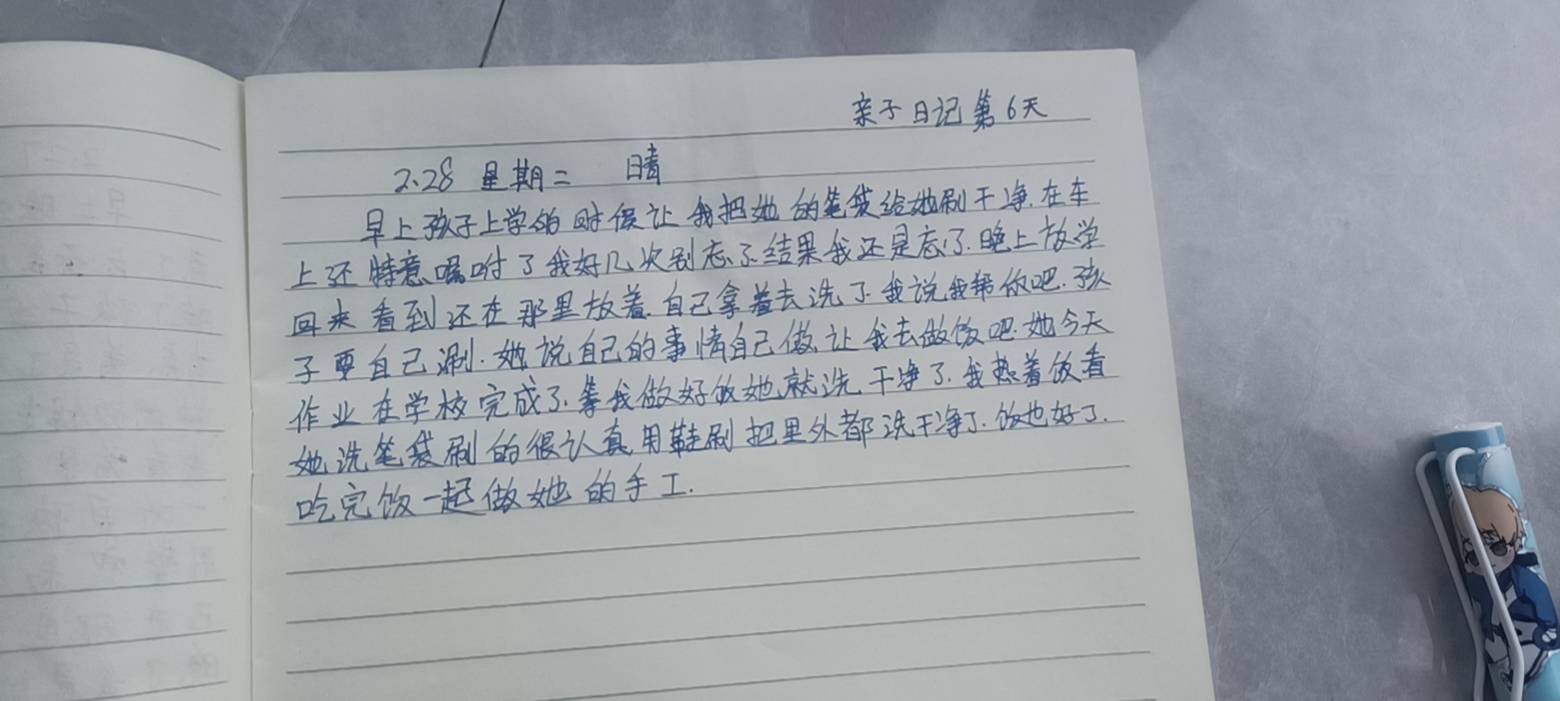 亲子日记第6天
2.28 星期二 晴
早上孩子上学的时候让我把她的笔袋给她刷干净.在车
上还特意嘱咐了我好几次别忘了结果我还是忘了.晚上放学
回来看到还在那里放着.自己拿着去洗了.我说我帮你吧.孩
子要自己涮.她说自己的事情自己做让我去做饭吧.她今天
作业在学校完成了.等我做好饭她就洗干净了.我热着饭看
她洗笔袋刷的很认真用鞋刷把里外都洗干净了.饭也好了.
吃完饭一起做她的手工.